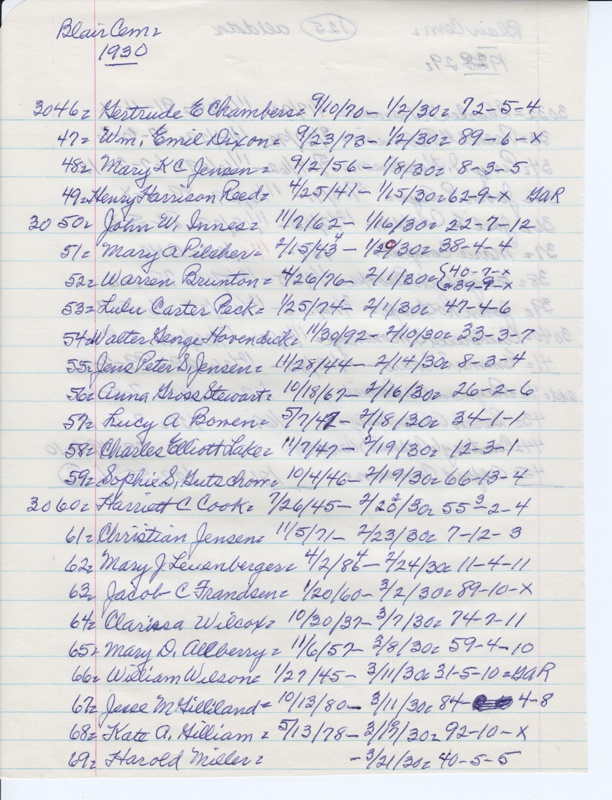 Blair Cem=
1930
3046= Gertrude E Chambers= 9/10/70 - 1/2/30= 72-5-4
47= Wm, Emil Dixon= 9/23/73 - 1/2/30= 89-6-x
48= Mary K C Jensen= 9/2/56 - 1/8/30= 8-3-5
49= Henry Harrison Reed= 4/25/41 - 1/15/30= 62-9-x GaR
3050= John W, Innes= 11/7/62 - 1/16/30= 22-7-12
51= Mary A Pilcher= 2/15/43 - 1/29/30= 38-4-4
52= Warren Brunton= 4/26/76 - 2/1/30= {40-7-x
=39-9-x
53= Lulu Carter Peck= 1/25/74 - 2/1/30= 47-4-6
54= Walter George Hovendick= 11/30/92 - 2/10/30= 33-3-7
55= Jens Peter S, Jensen= 11/28/44 - 2/14/30= 8-3-4
56= Anna Gross Stewart= 10/18/67 - 2/16/30= 26-2-6
57= Lucy A Bowen= 5/7/47 - 2/18/30= 34-1-1
58= Charles Elliott Lake= 11/7/47 - 2/19/30= 12-3-1
59= Sophie S, Gutschow= 10/4/46 - 2/19/30= 66-13-4
3060= Harriett C Cook= 7/26/45 - 2/20/30= 55-2-4
61= Christian Jensen= 11/5/71 - 2/23/30= 7-12-3
62= Mary J Leuenberger= 4/2/86 - 2/24/30= 11-4-11
63= Jacob C Frandsen= 1/20/60 - 3/2/30= 89-10-x
64= Clarissa Wilcox= 10/30/37 - 3/7/30= 74-7-11
65= Mary D, Allberry= 11/6/57 - 3/8/30= 59-4-10
66= William Wilson= 1/27/45 - 3/11/30= 31-5-10= GaR
67= Jesse McGilliland= 10/13/80 - 3/11/30= 84- 4-8
68= Kate A, Gilliam= 5/13/78 - 3/19/30= 92-10-x
69= Harold Miller= - 3/21/30= 40-5-5